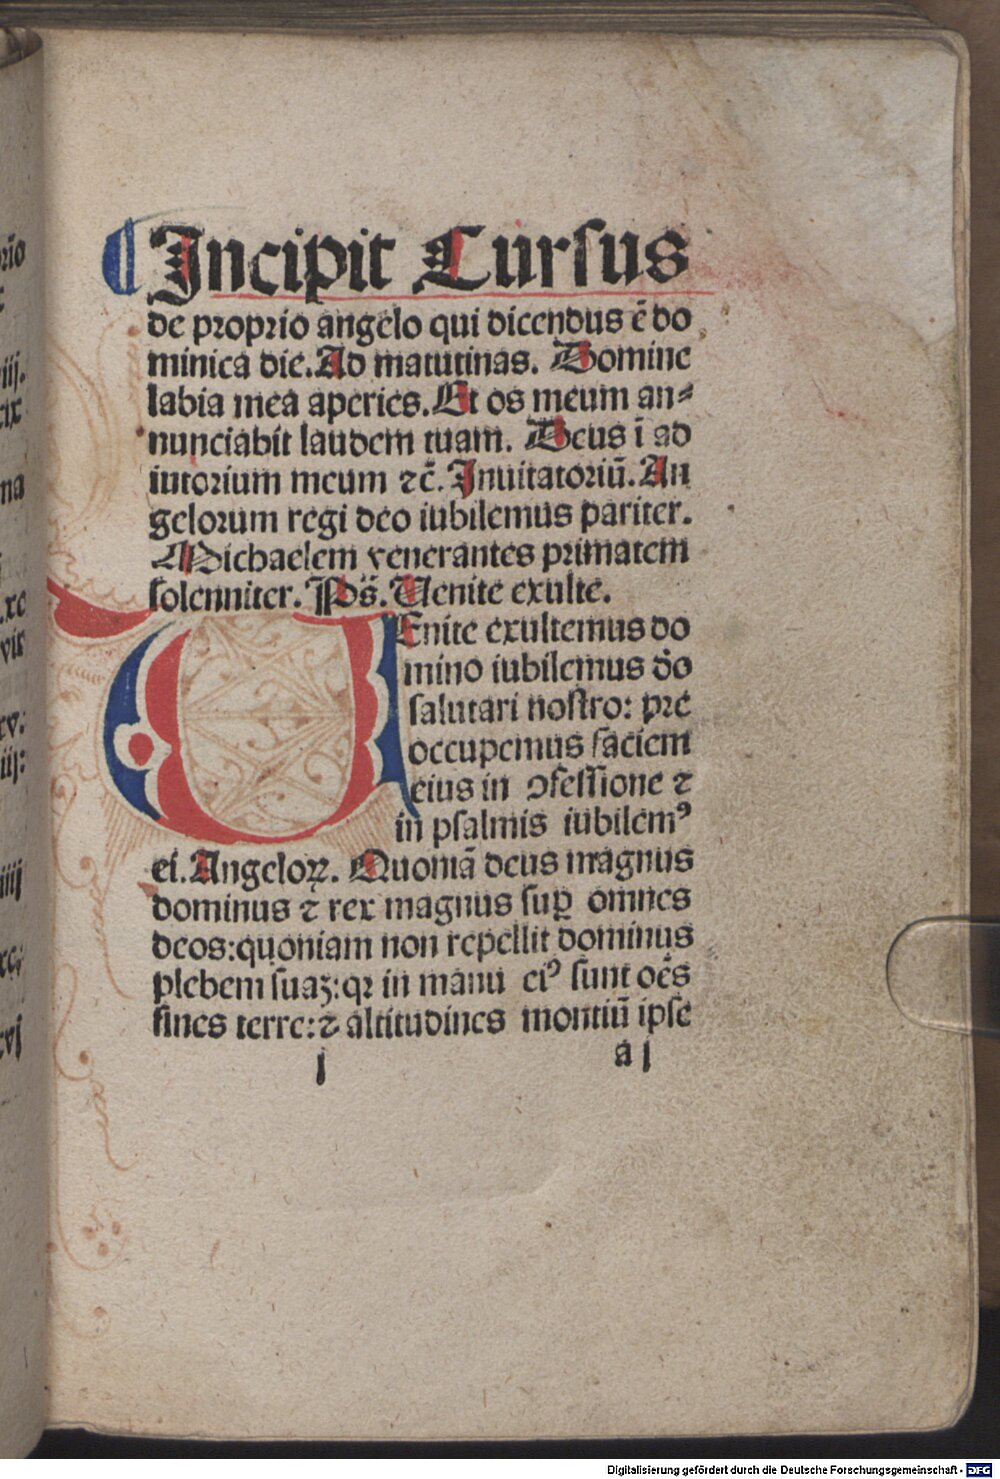 ¶ Incipit Cursus
de proprio angelo qui dicendus ē do
minica die. Ad matutinas. Domine
labia mea aperies. Et os meum an⸗
nunciabit laudem tuam. Deus ī ad
iutorium meum ⁊c̄. Inuitatoriū. An
gelorum regi deo iubilemus pariter.
Michaelem venerantes primatem
solenniter. Ps̄. Uenite exulte.
UEnite exultemus do
mino iubilemus dō
salutari nostro: pre
occupemus faciem
eius in ꝯfessione ⁊
in psalmis iubilemꝰ
ei. Angeloꝝ. Quoniā deus magnus
dominus ⁊ rex magnus suꝑ omnes
deos: quoniam non repellit dominus
plebem suaꝫ: qꝛ in manu eiꝰ sunt oēs
fines terre: ⁊ altitudines montiū ipse
a j
Digitalisierung gefördert durch die Deutsche Forschungsgemeinschaft - DFG